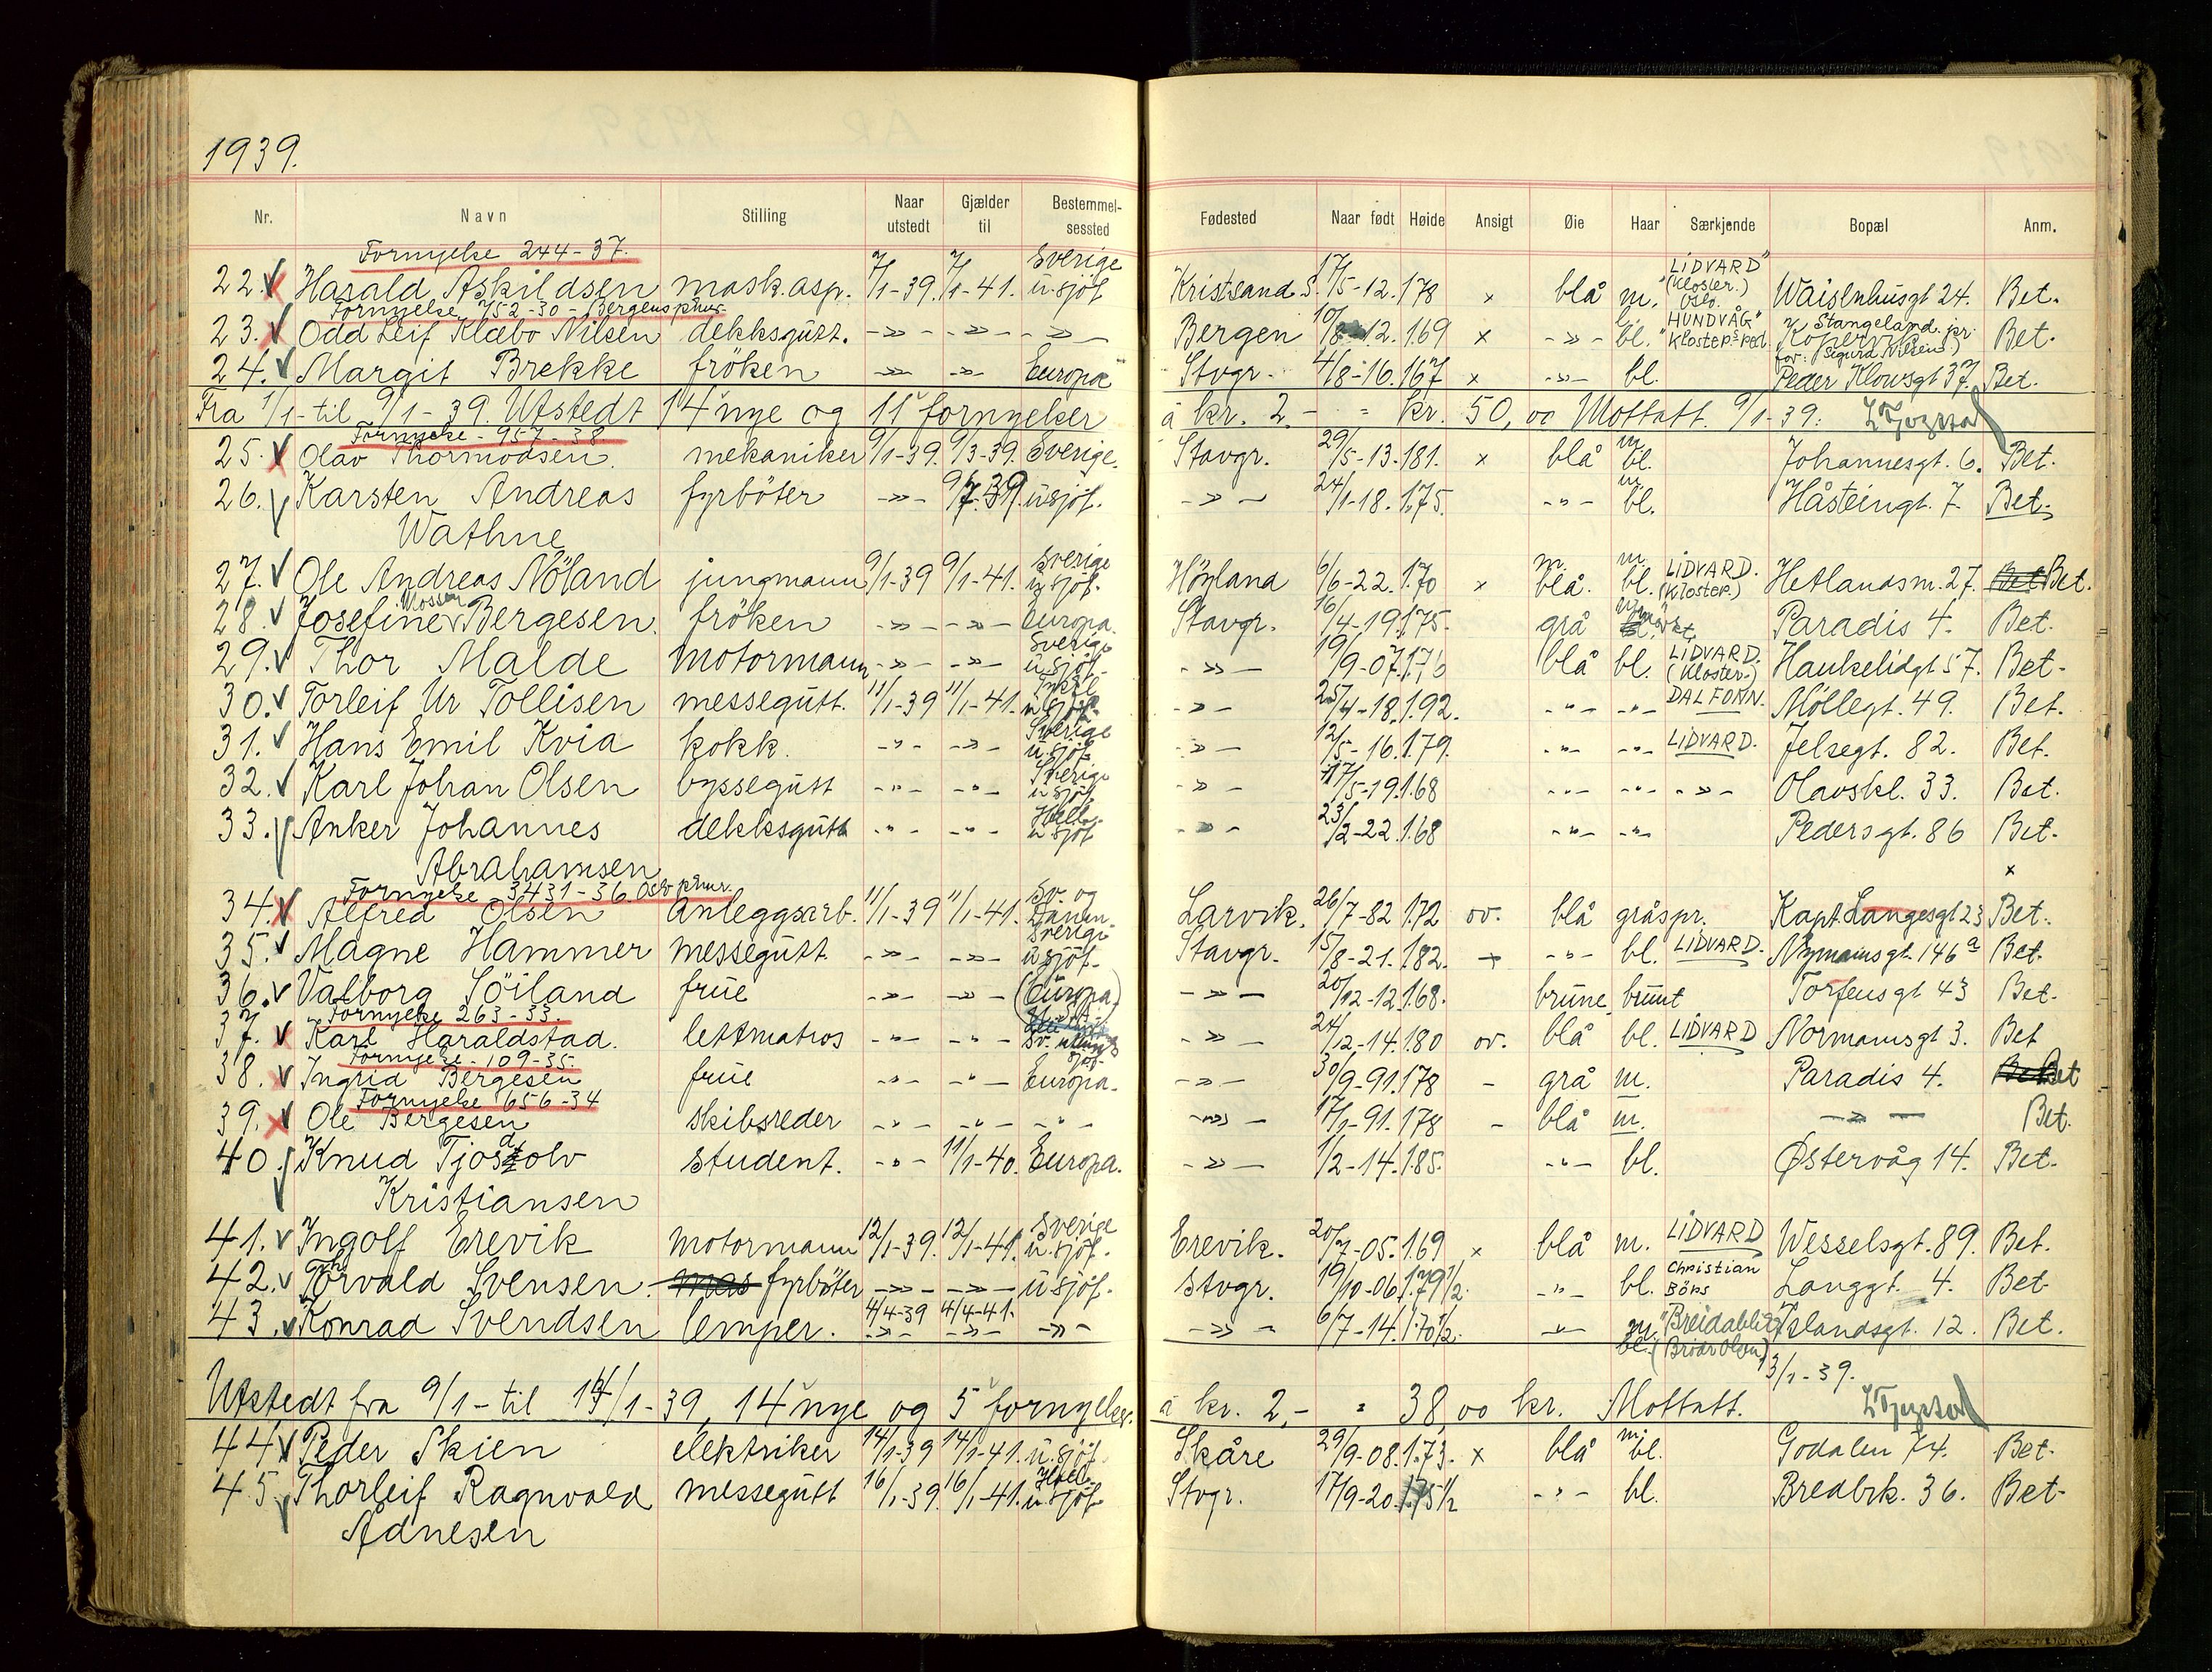 1939.
Nr. Navn Stilling Naar utstedt Gjælder til Bestemmelsessted Fødested Naar født Høide Ansigt Øie Haar Særkjende Bopæl Anm.
Fornyelse 244-37.
22. Harald Askildsen mask.asp. 7/1-39. 7/1-41. Sverige u.sjöf. Kristsand S. 17/5-12. 178 x blå m. "LIDVARD" (Kloster.) Oslo. Waisenhusgt 24. Bet.
Fornyelse 752-30 - Bergens pkmr.
23. Odd Leif Klæbo Nilsen dekksgutt. -»- -»- -»- Bergen 10/8-12. 169 x -»- bl. "HUNDVÅG" Klosters red. Stangeland pr. Kopervik Bet.
24. Margit Brekke fröken -»- -»- Europa Stvgr. 4/8-16. 167 x -»- bl. (Sigurd Nilsen) Peder Klowsgt 37. Bet.
Fra 1/1- til 9/1-39. Utstedt 14 nye og 11 fornyelser à kr. 2,- = kr. 50,00 Mottatt. 9/1-39.
Fornyelse - 957-38
25. Olav Thormodsen. mekaniker 9/1-39. 9/3-39. Sverige. Stavgr. 29/5-13. 181. x blå m. bl. Johannesgt. 6. Bet.
26. Karsten Andreas fyrböter -»- 9/7-39 u.sjöf. -»- 24/1-18. 1.75. -"- m. bl. Håsteinsgt. 7. Bet.
Wathne
27. Ole Andreas Nöland jungmann 9/1-39 9/1-41. Sverige u.sjöf. Höyland 6/6-22. 1.70 x m. blå. m. bl. LIDVARD. (Kloster.) Hetlandsm. 27. Bet.
28. Josefine Mossen Bergesen. fröken -»- -»- Europa. Stavgr. 16/4-19. 175. grå mørkt. Paradis 4. Bet.
29. Thor Malde motormann -»- -»- Sverige u.sjöf. -»- 19/9-07. 176 blå bl. LIDVARD. (Kloster.) Haukelidgt 57. Bet-
30. Torleif Ur Tollisen messegutt. 11/1-39 11/1-41. u.sjöf. -»- 25/4-18. 1.92. -"- -"- DALFONN. Møllegt. 49. Bet.
31. Hans Emil Kvia kokk. -"- -»- Sverige u.sjöf. -»- 12/5-16. 179. -"- -"- LIDVARD. Jelsegt. 82. Bet.
32. Karl Johan Olsen byssegutt -"- -"- Sverige u.sjöf. -»- 17/5-19. 1.68 -"- -"- -»- Olavskl. 33. Bet.
33. Anker Johannes dekksgutt -"- -"- Holl. u.sjöf -»- 23/2-22. 1.68 -"- -"- Pedersgt. 86 Bet-
Abrahamsen x
Fornyelse 3431-36 Oslo pkmr.
34. Alfred Olsen anleggsarb. 11/1-39 11/1-41. Sv. og Danm. Larvik. 26/7-82 172 ov. blå gråspr. Kapt. Langesgt 23 Bet.
35. Magne Hammer messegutt. -»- -»- Sverige u.sjöf. Stavgr. 15/8-21. 182. x -"- bl. LIDVARD. Nymannsgt. 146a Bet.
36. Valborg Söiland frue -»- -»- (Europa) -»- 20/12-12. 168. brune brunt Torfeusgt 43 Bet.
Fornyelse 263-33.
37. Karl Haraldstad. lettmatros -"- -"- Sv. -»- 24/12-14. 180 ov. blå bl. LIDVARD Normannsgt 3. Bet
Fornyelse - 109-35.
38. Ingrid Bergesen frue -"- -"- Europa. -»- 30/9-91. 178 - grå m. Paradis 4. Bet
Fornyelse 656-34
39. Ole Bergesen skibsreder -"- -"- -"- -»- 17/1-91. 178 - blå m. -»- Bet.
40. Knud Tjostolv student. -"- 11/1-40. Europa. -»- 1/2-14. 1.85. -"- bl. Østervåg 14. Bet.
Kristiansen
41. Ingolf Erevik motormann 12/1-39. 12/1-41. Sverige u.sjöf. Erevik. 20/7-05. 1.69 x blå m. LIDVARD Wesselsgt. 89. Bet.
42. Thorvald Svensen. fyrböter -»- -»- u.sjöf. Stvgr. 19/10-06. 1.79 1/2. -"- bl. Christian Börs Langgt. 4. Bet
43. Konrad Svendsen lemper. 4/4-39 4/4-41. -»- -»- -»- -»- 6/7-14. 1.70 1/2. -"- m. bl. "Breidablik" (Brödr Olsen) Islandsgt. 12. Bet.
Utstedt fra 9/1- til 14/1-39, 14 nye og 5 fornyelser. à kr. 2,- = 38,00 kr. Mottatt. 13/1-39.
44. Peder Skien elektriker 14/1-39 14/1-41. u.sjöf. Skåre 29/9-08. 1.73. x blå m. bl. Godalen 74. Bet.
45. Thorleif Ragnvald messegutt 16/1-39. 16/1-41. Holl. u.sjöf. Stvgr. 17/9-20. 1.75 1/2 -"- bl. Bredbrk. 36. Bet-
Adnesen